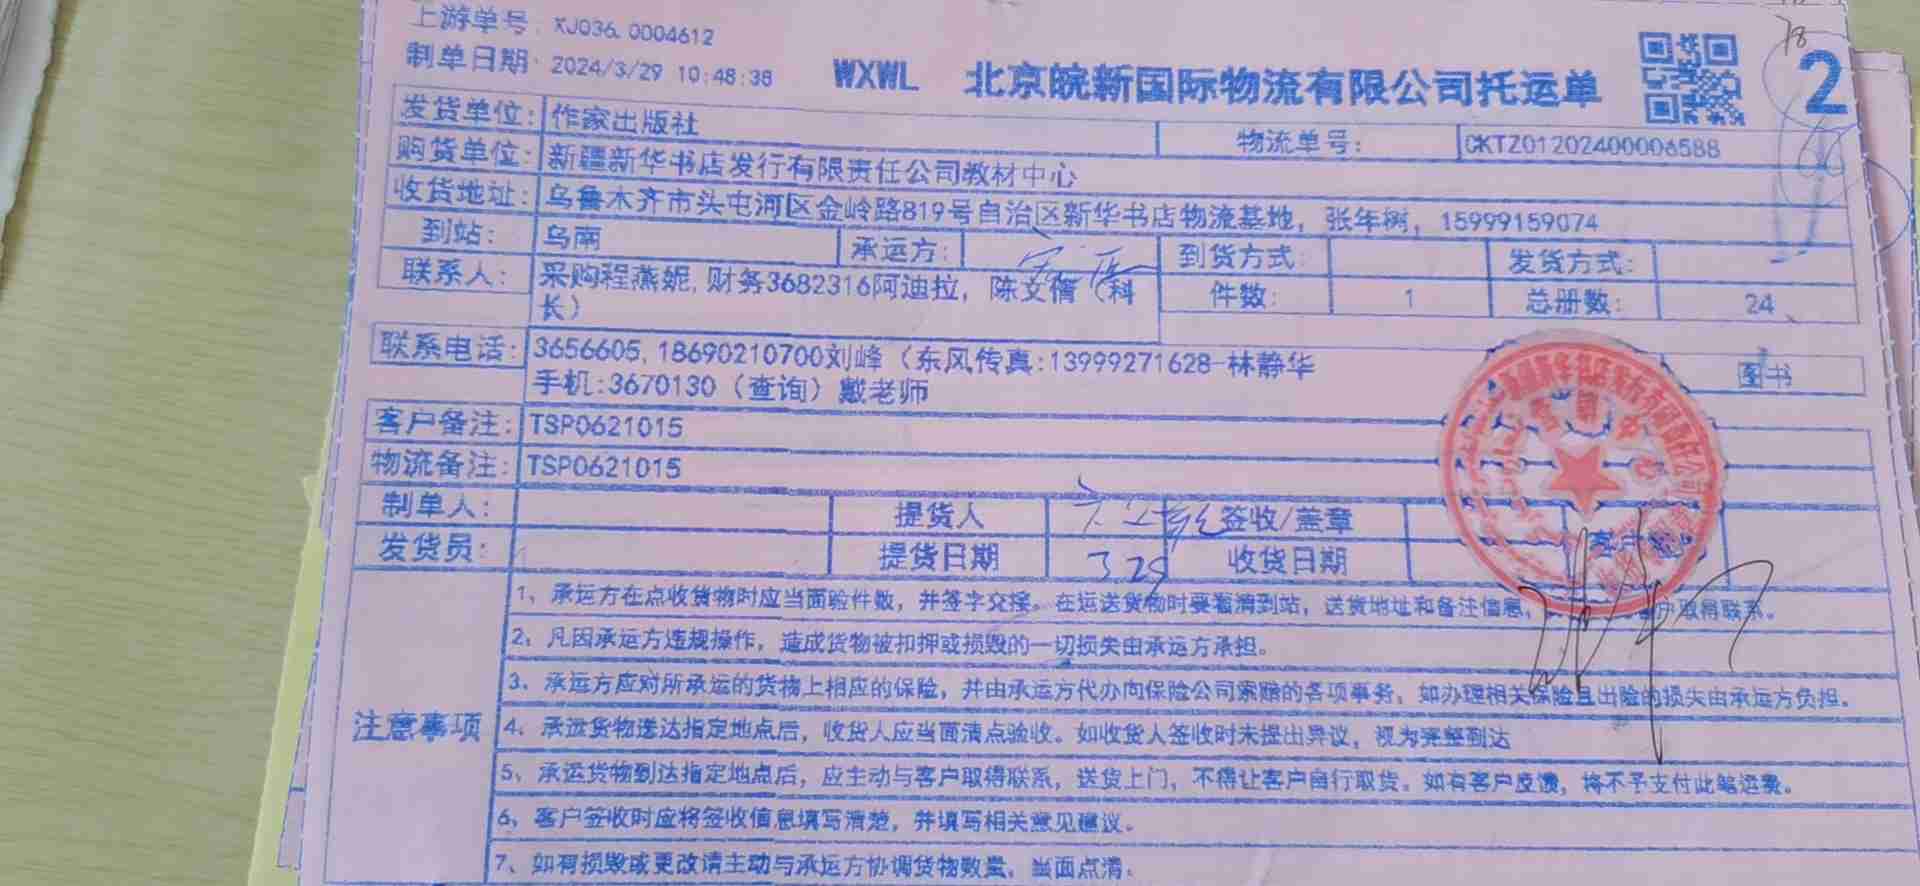 上游单号: XJ036.0004612
制单日期: 2024/3/29 10:48:38
WXWL 北京皖新国际物流有限公司托运单
2
78
发货单位: 作家出版社 物流单号: CKTZ01202400006588
购货单位: 新疆新华书店发行有限责任公司教材中心
收货地址: 乌鲁木齐市头屯河区金岭路819号自治区新华书店物流基地, 张年树, 15999159074
到站: 乌南 承运方: 到货方式: 发货方式:
联系人: 采购程燕妮,财务3682316阿迪拉, 陈文倩(科 件数: 1 总册数: 24
长)
联系电话: 3656605,18690210700刘峰(东风传真:13999271628-林静华 图书
手机:3670130(查询)戴老师
客户备注: TSP0621015
物流备注: TSP0621015
制单人: 提货人 签收/盖章
发货员: 提货日期 3.29 收货日期
注意事项
1、承运方在点收货物时应当面验件数,并签字交接。在运送货物时要看清到站,送货地址和备注信息, 客户取得联系。
2、凡因承运方违规操作,造成货物被扣押或损毁的一切损失由承运方承担。
3、承运方应对所承运的货物上相应的保险,并由承运方代办向保险公司索赔的各项事务。如办理相关保险且出险的损失由承运方负担。
4、承运货物送达指定地点后,收货人应当面清点验收。如收货人签收时未提出异议,视为完整到达
5、承运货物到达指定地点后,应主动与客户取得联系,送货上门,不得让客户自行取货。如有客户反馈,将不予支付此笔运费。
6、客户签收时应将签收信息填写清楚,并填写相关意见建议。
7、如有损毁或更改请主动与承运方协调货物数量,当面点清。